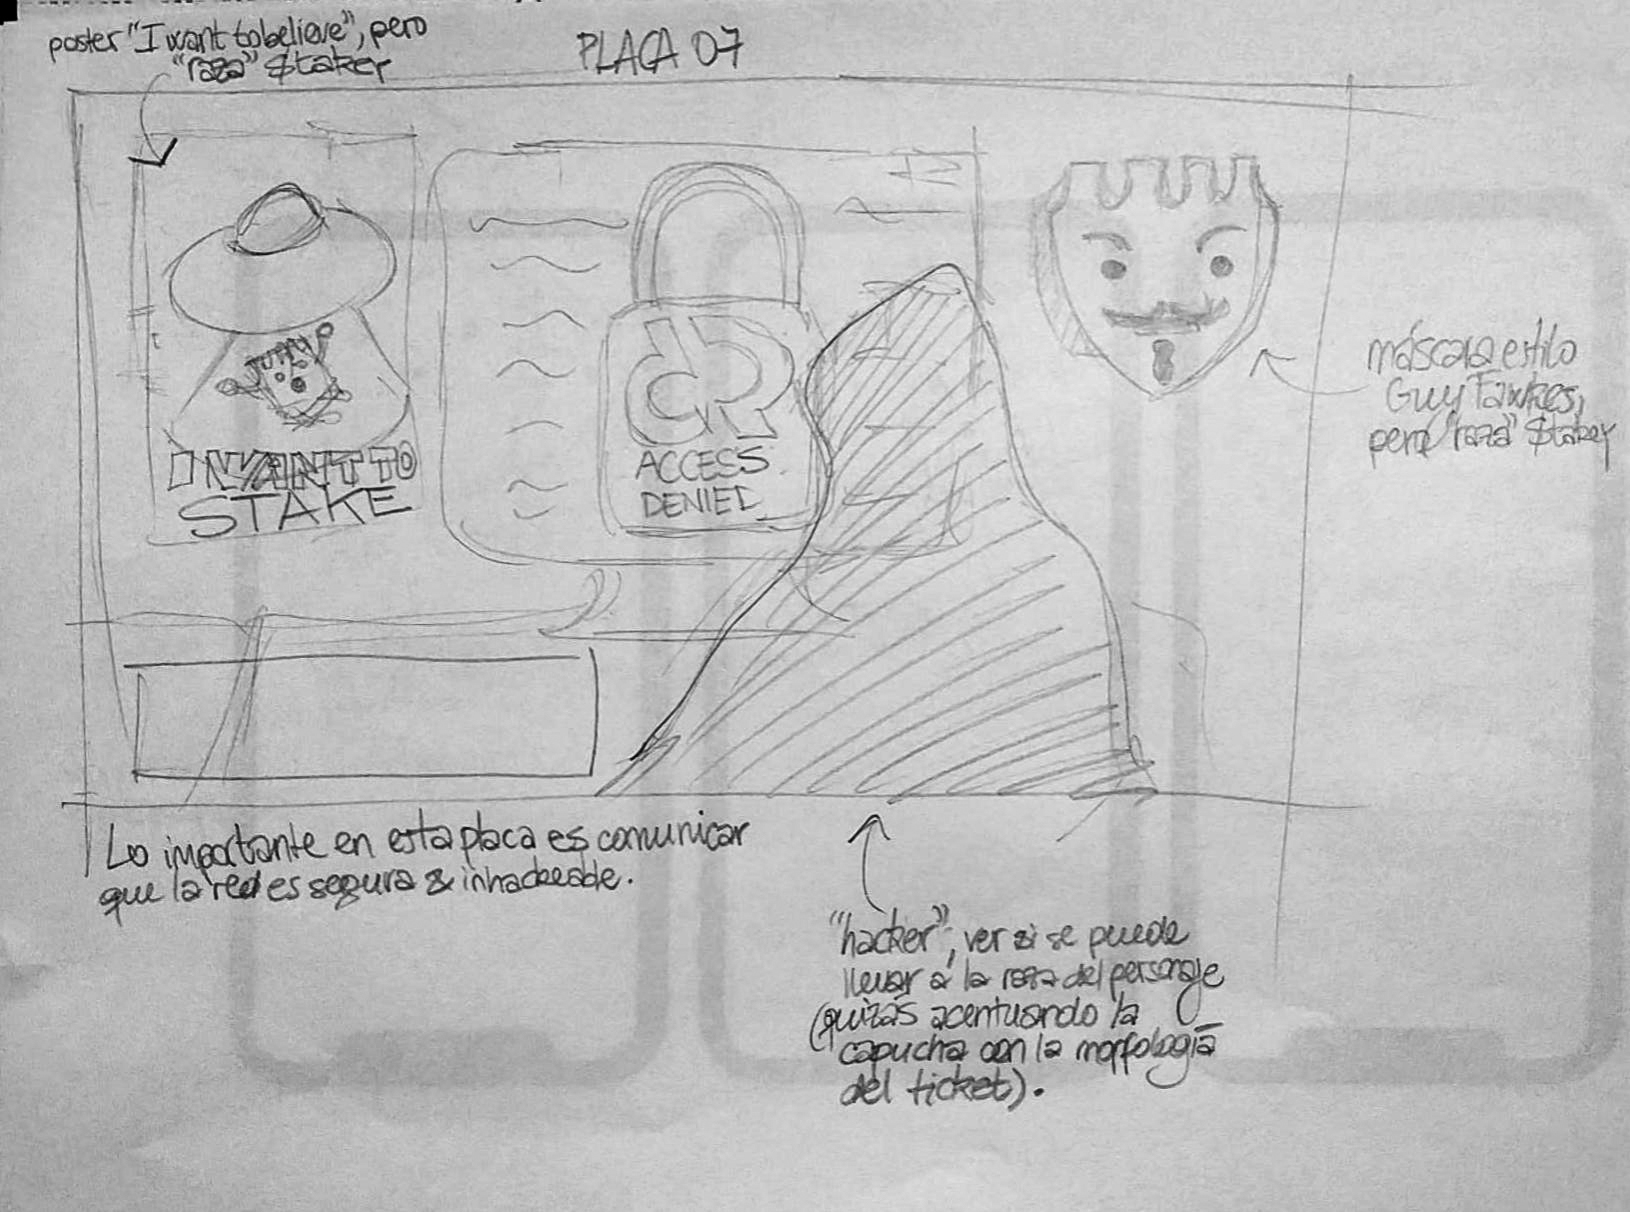 poster "I want to believe", pero
"raza" $taker
PLACA 07
I WANT TO
STAKE
ACCESS
DENIED
máscara estilo
Guy Fawkes,
pero "raza" $taker
Lo importante en esta placa es comunicar
que la red es segura & inhackeable.
"hacker", ver si se puede
llevar a la raza del personaje
(quizás acentuando la
capucha con la morfología
del ticket).